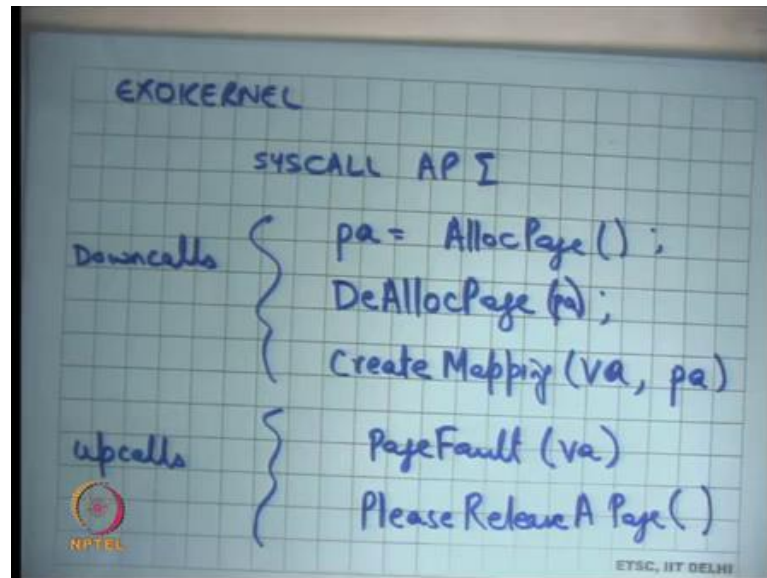 EXOKERNEL
SYSCALL API
Downcalls
pa = AllocPage();
DeAllocPage(pa);
Create Mapping (va, pa)
upcalls
PageFault (va)
Please Release A Page()
NPTEL
ETSC, IIT DELHI